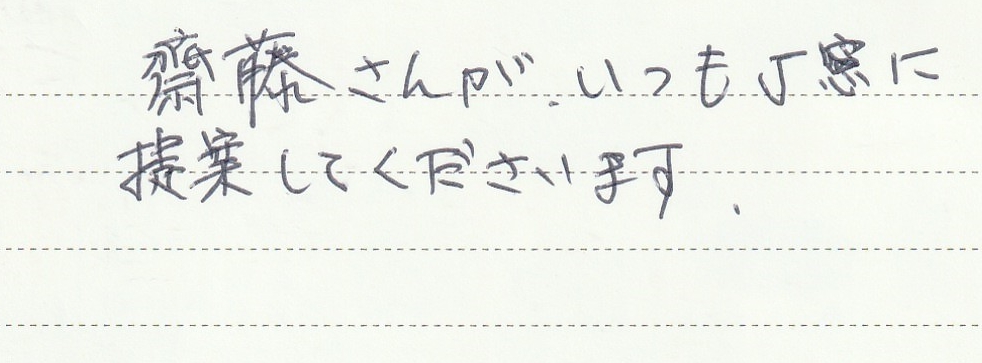 齋藤さんが、いつも丁寧に
提案してくださいます。